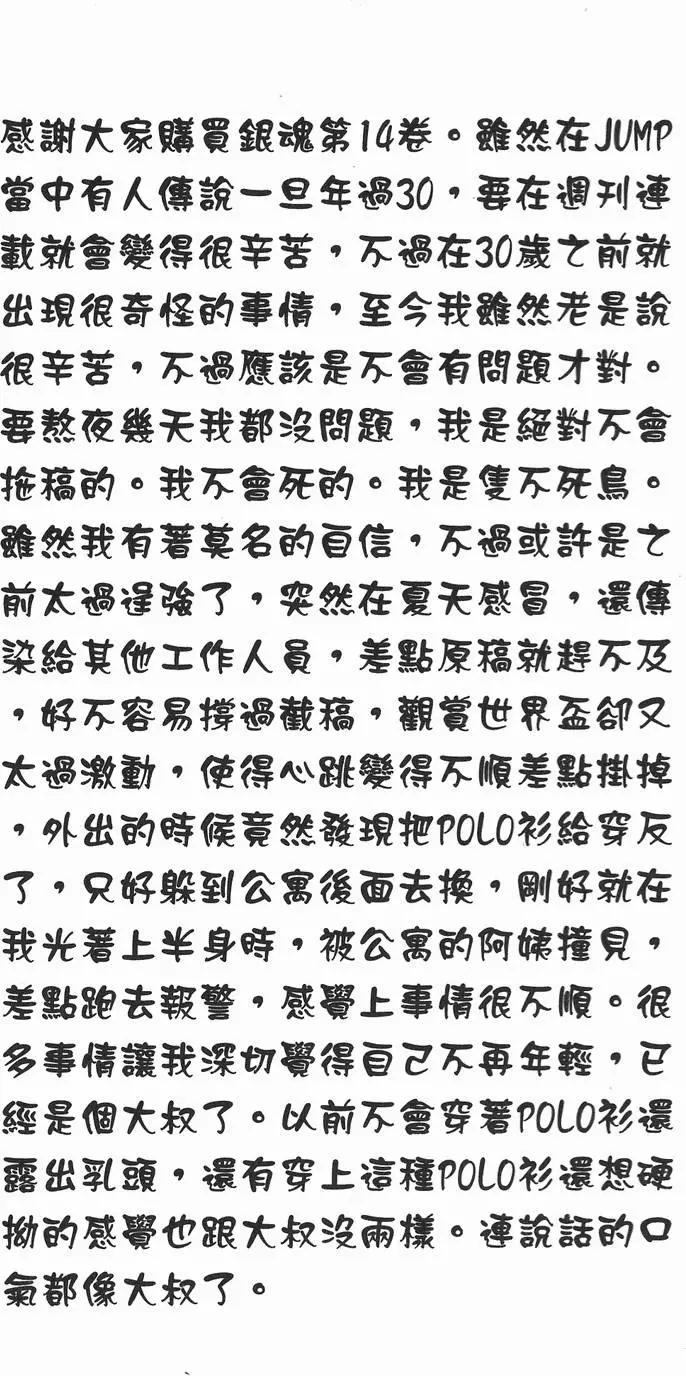 感謝大家購買銀魂第14卷。雖然在JUMP
當中有人傳說一旦年過30，要在週刊連
載就會變得很辛苦，不過在30歲之前就
出現很奇怪的事情，至今我雖然老是說
很辛苦，不過應該是不會有問題才對。
要熬夜幾天我都沒問題，我是絕對不會
拖稿的。我不會死的。我是隻不死鳥。
雖然我有著莫名的自信，不過或許是之
前太過逞強了，突然在夏天感冒，還傳
染給其他工作人員，差點原稿就趕不及
，好不容易撐過截稿，觀賞世界盃卻又
太過激動，使得心跳變得不順差點掛掉
，外出的時候竟然發現把POLO衫給穿反
了，只好躲到公寓後面去換，剛好就在
我光著上半身時，被公寓的阿姨撞見，
差點跑去報警，感覺上事情很不順。很
多事情讓我深切覺得自己不再年輕，已
經是個大叔了。以前不會穿著POLO衫還
露出乳頭，還有穿上這種POLO衫還想硬
拗的感覺也跟大叔沒兩樣。連說話的口
氣都像大叔了。